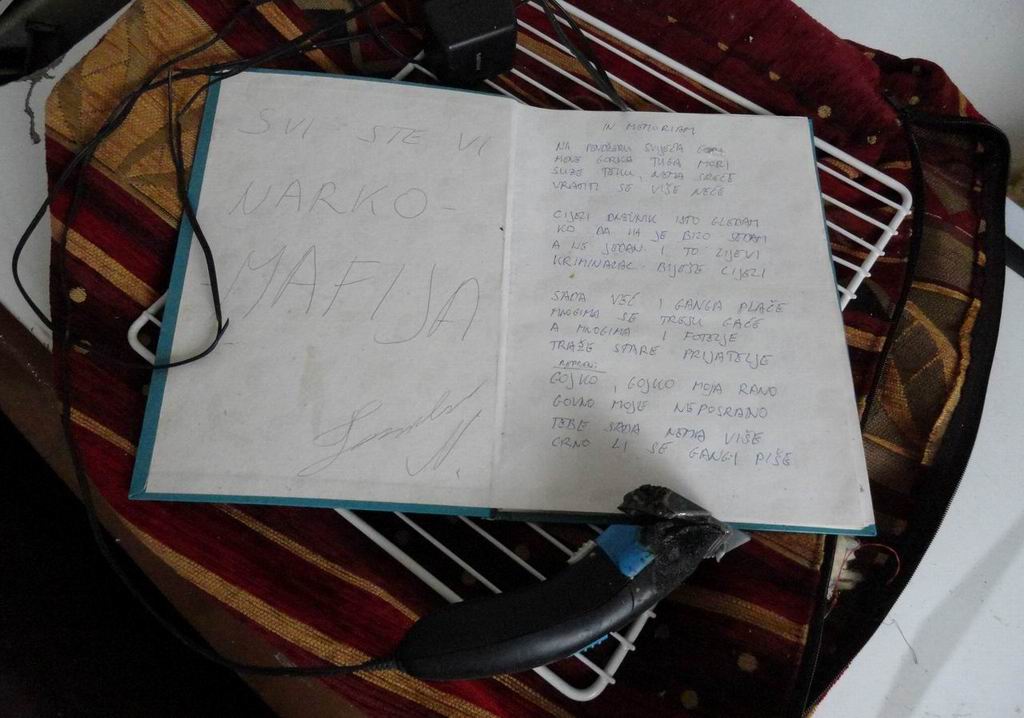 SVI STE VI
NARKO-
MAFIJA
IN MEMORIAM
NA PONOŽERU SVIJEĆA
MENE GORKA TUGA MORI
SUZE TEKU, NEMA SREĆE
VRATITI SE VIŠE NEĆE
CIJELI DNEVNIK ISTO GLEDAM
KO DA GA JE BILO SEDAM
A NE JEDAN I TO LIJEVI
KRIMINALAC BJEŠE CIJELI
SADA VEĆ I GANGA PLAČE
MNOGIMA SE TRESU GAĆE
A MNOGIMA I FOTELJE
TRAŽE STARE PRIJATELJE
GOJKO, GOJKO MOJA RANO
GOVNO MOJE NEPOSRANO
TEBE SADA NEMA VIŠE
CRNO LI SE GANGI PIŠE